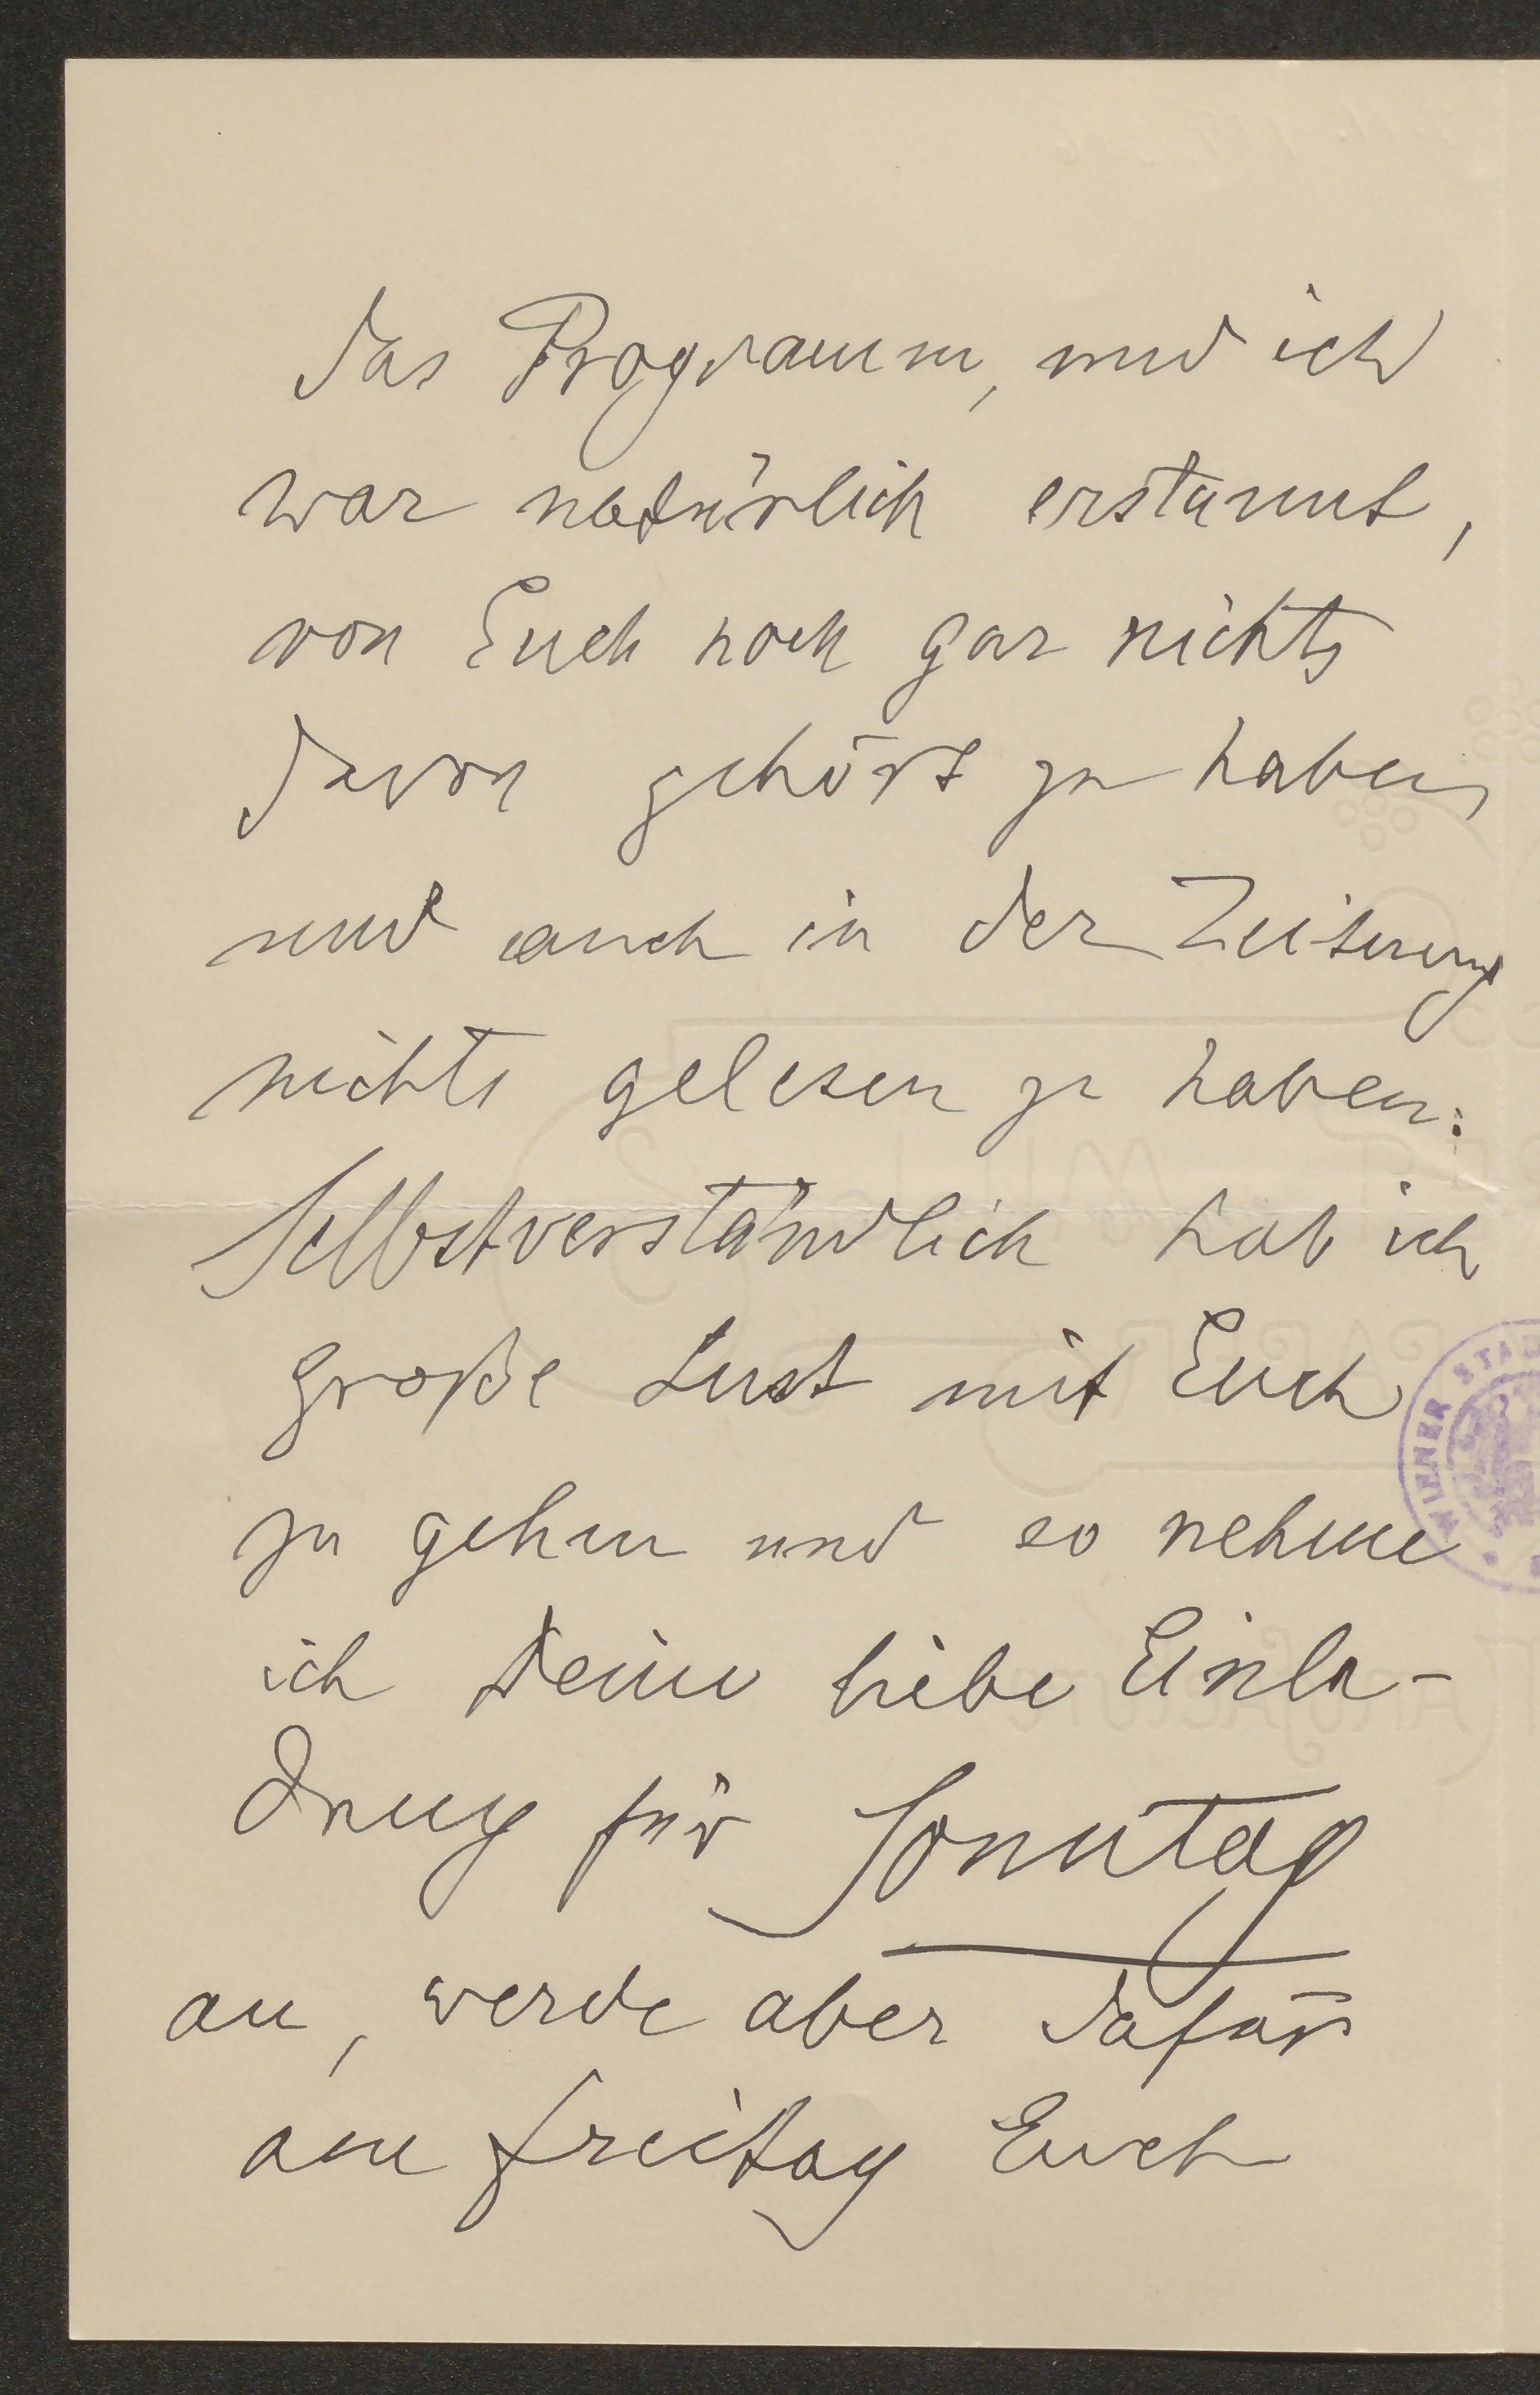 das Programm, und ich
war natürlich erstaunt,
von Euch noch gar nichts
davon gehört zu haben,
und auch in der Zeitung
nichts gelesen zu haben.
Selbstverständlich hab ich
große Lust mit Euch
zu gehen und so nehme
ich Deine liebe Einla-
dung für Sonntag
an, werde aber dafür
am Freitag Euch
WIENER STA